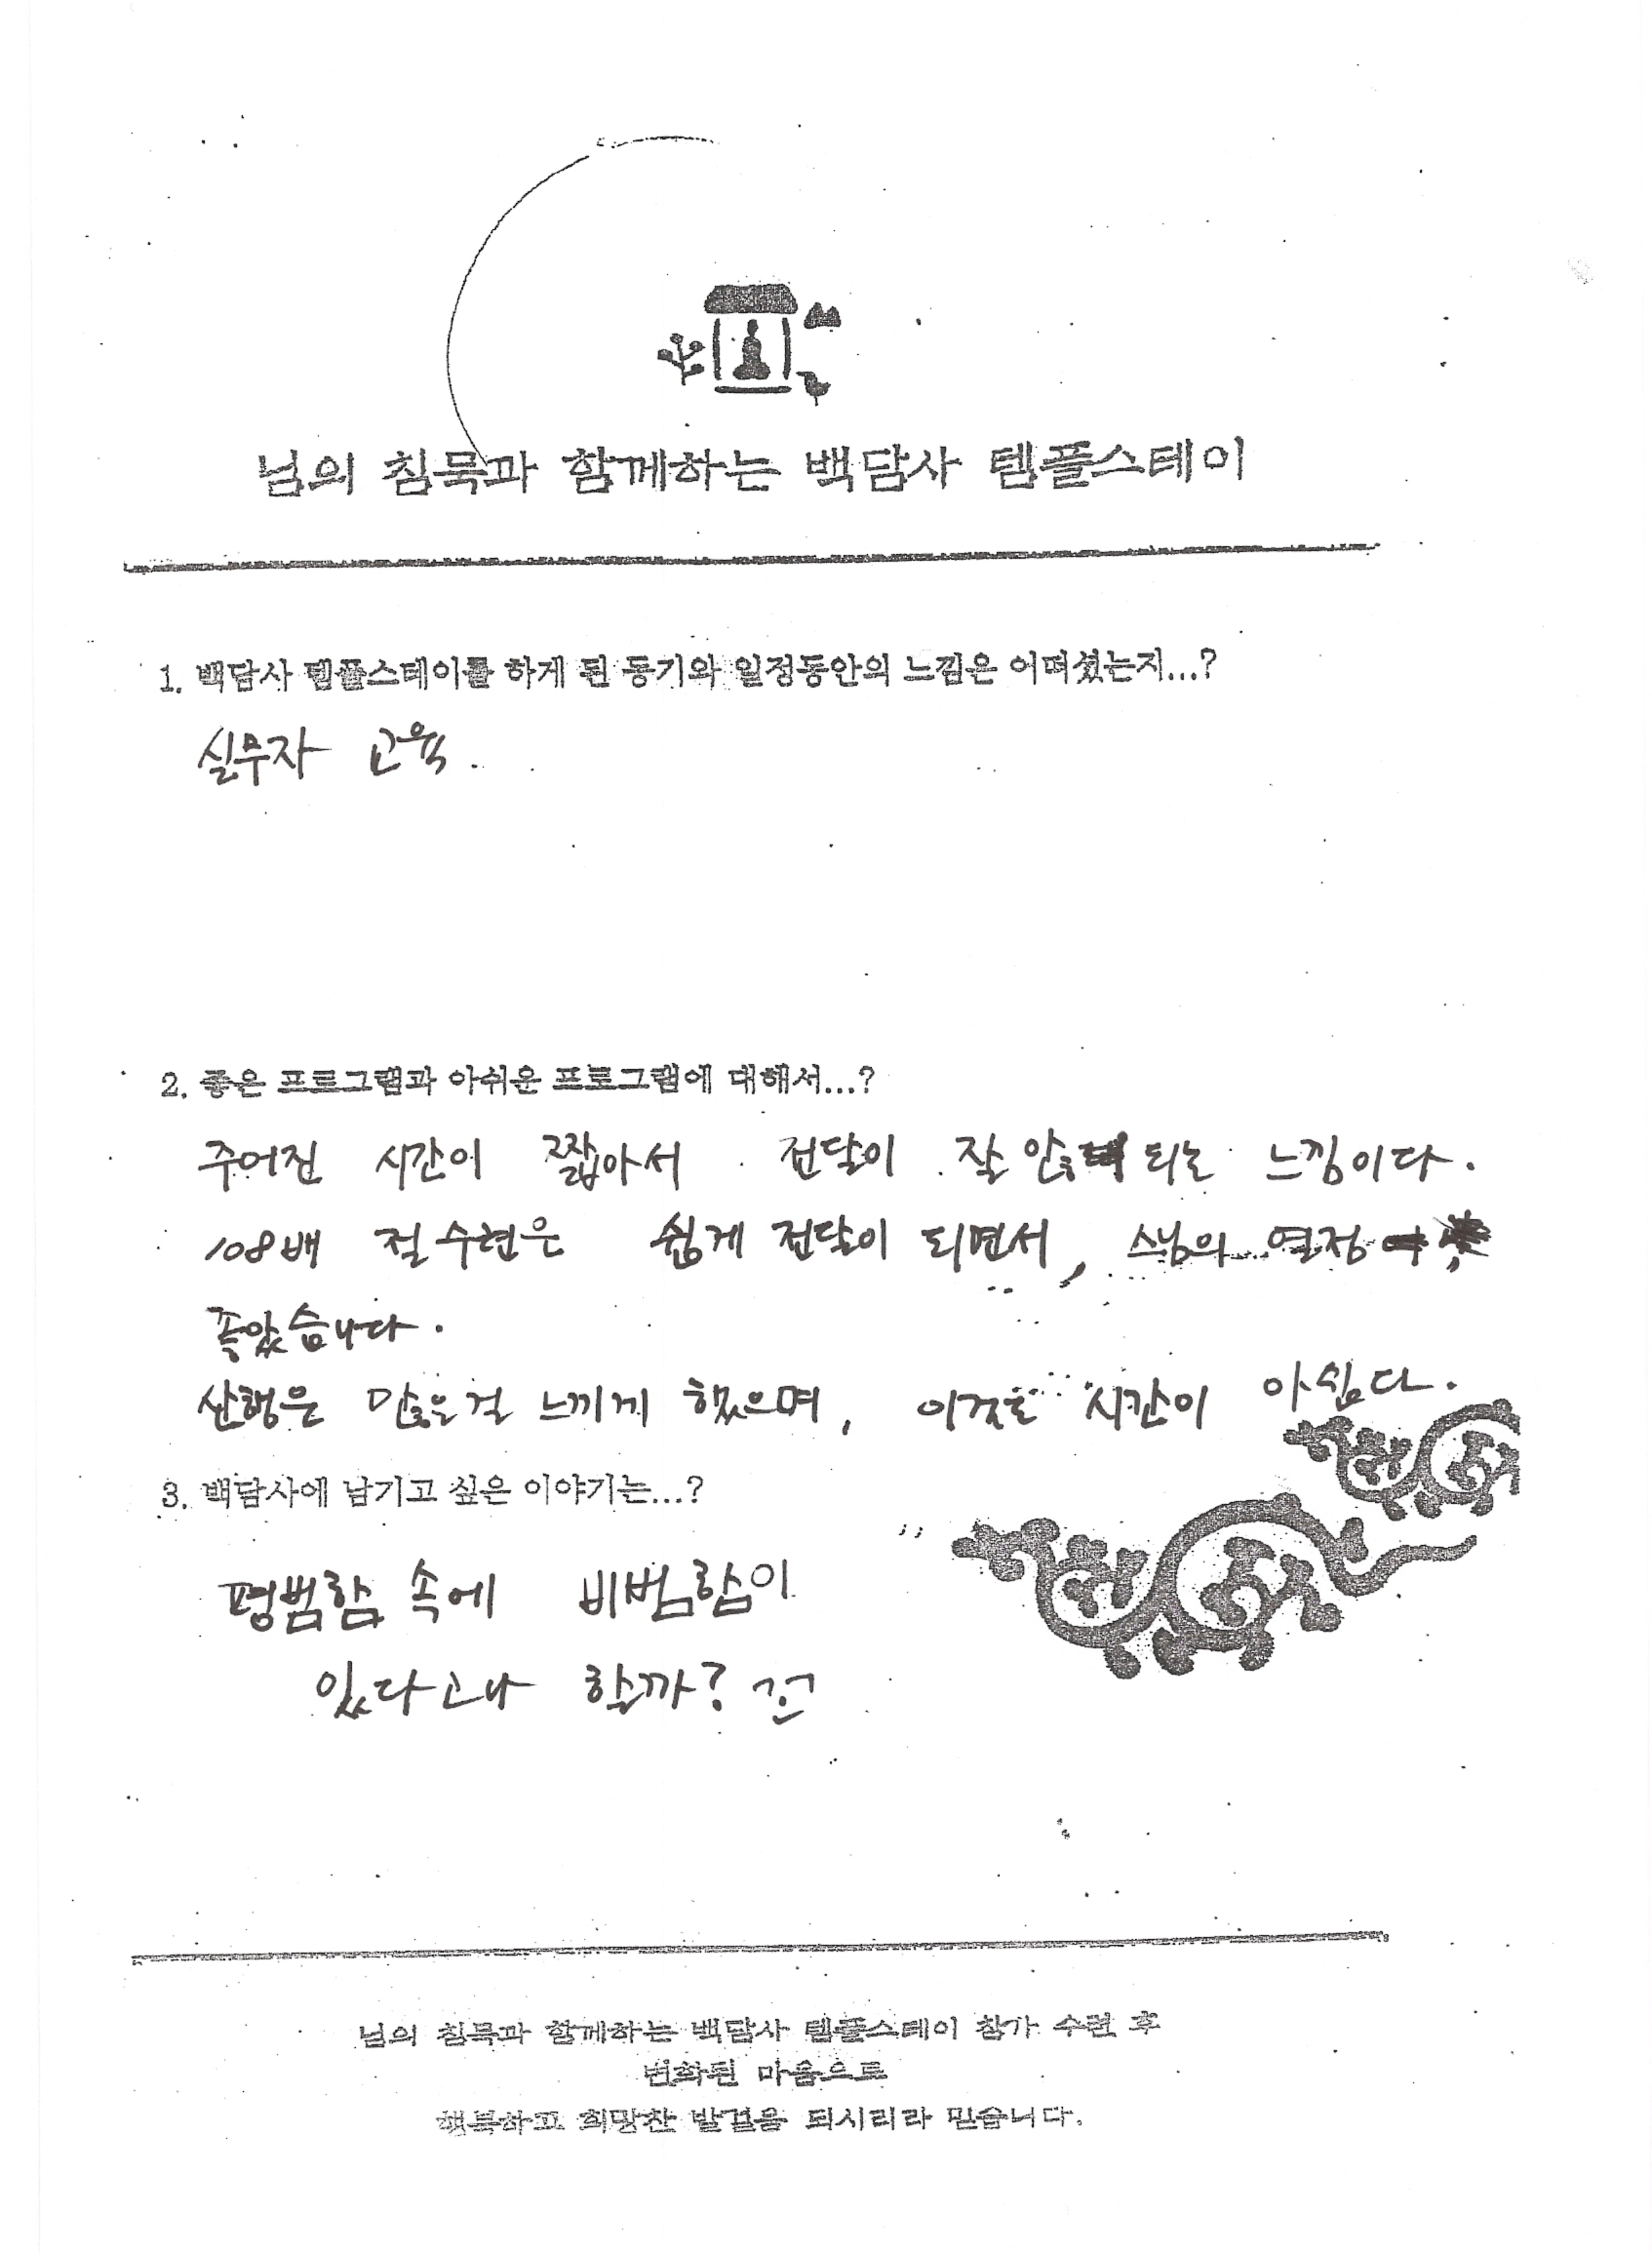 님의 침묵과 함께하는 백담사 템플스테이
1. 백담사 템플스테이를 하게 된 동기와 일정동안의 느낌은 어떠셨는지...?
실무자 교육.
2. 좋은 프로그램과 아쉬운 프로그램에 대해서...?
주어진 시간이 짧아서 전달이 잘 안 되는 느낌이다.
108배 절수련은 쉽게 전달이 되면서, 스님의 열정
좋았습니다.
산행은 많은걸 느끼게 했으며, 시간이 아쉽다.
3. 백담사에 남기고 싶은 이야기는...?
평범함 속에 비범함이
있다고나 할까?
님의 침묵과 함께하는 백담사 템플스테이 참가 수련 후
변화된 마음으로
행복하고 희망찬 발걸음 되시리라 믿습니다.